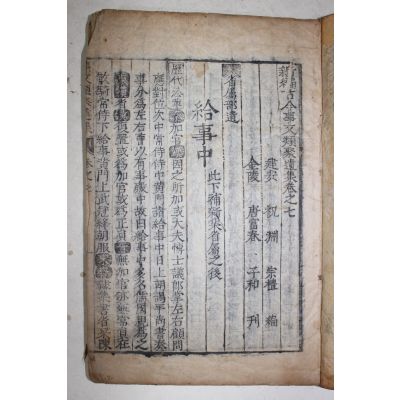 新編古今事文類聚遺集卷之七
建安 祝淵 宗禮 編
金陵 唐富春 子和 刊
省屬部遺
給事中 此下補新集省屬之後
歷代沿革 加官 因之所加或大夫博士議郎掌左右顧問
應對位次中常侍 侍中黃門諸給事中日上朝謁平尚書奏
事分爲左右曹以有事殿中故曰給事中多名儒國親爲之
省 復置或爲加官或爲正員 無加官亦無常員在
散騎常侍下給事黃門上武冠絳朝服 隸集書省